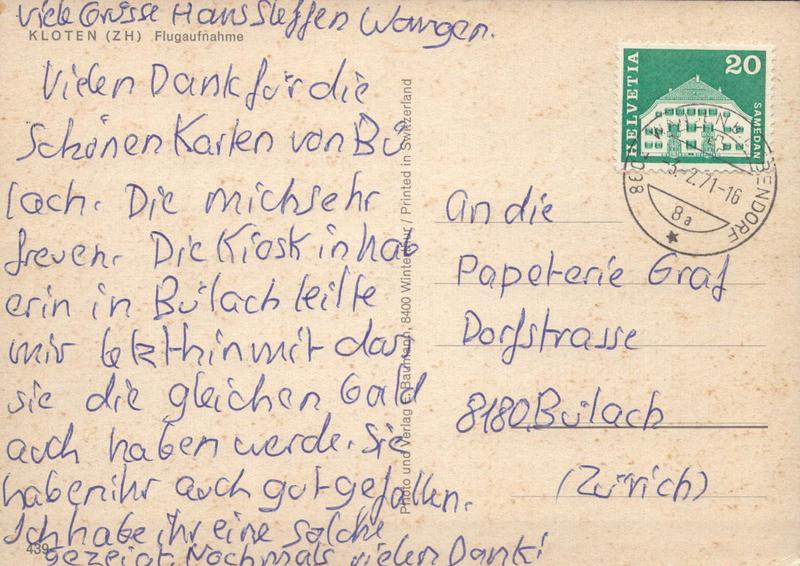 Viele Grüsse Hans Steffen Wangen.
KLOTEN (ZH) Flugaufnahme
Vielen Dank für die
Schönen Karten von Bü
lach. Die mich sehr
freuen. Die Kiosk in hab
erin in Bülach teilte
mir letzthin mit das
sie die gleichen bald
auch haben werde. Sie
haben ihr auch gut gefallen.
Ich habe ihr eine solche
gezeigt. Nochmals vielen Dank!
439
Photo und Verlag Baumann, 8400 Winterthur / Printed in Switzerland
HELVETIA
20
SAMEDAN
3.2.71-16
8a
An die
Papeterie Graf
Dorfstrasse
8180 Bülach
(Zürich)